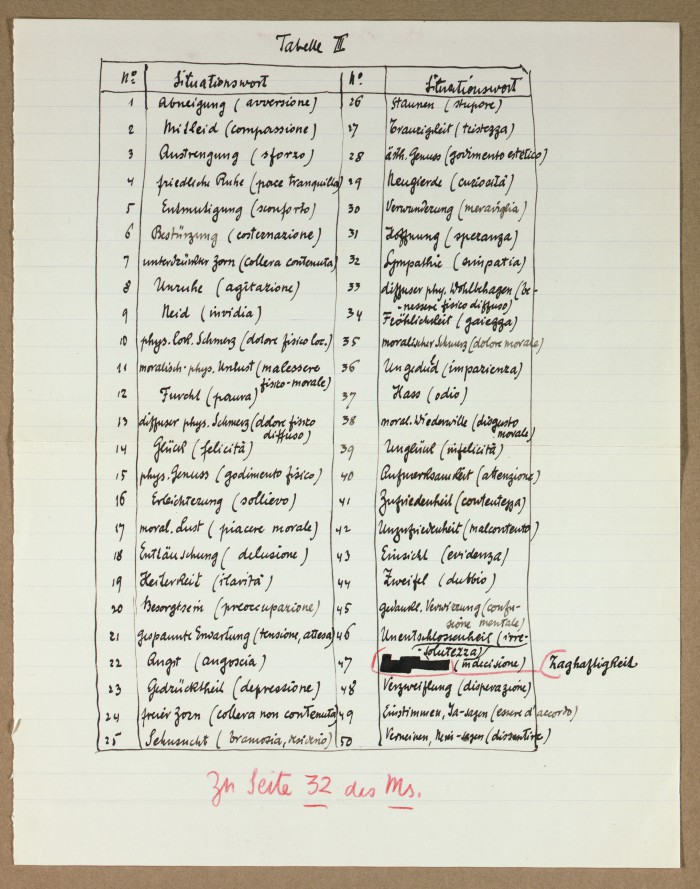 Tabelle III
No. Situationswort
1 Abneigung (avversione)
2 Mitleid (compassione)
3 Anstrengung (sforzo)
4 friedliche Ruhe (pace tranquilla)
5 Entmutigung (sconforto)
6 Bestürzung (costernazione)
7 unterdrückter Zorn (collera contenuta)
8 Unruhe (agitazione)
9 Neid (invidia)
10 phys. lok. Schmerz (dolore fisico loc.)
11 moralisch-phys. Unlust (malessere
fisico-morale)
12 Furcht (paura)
13 diffuser phys. Schmerz (dolore fisico
diffuso)
14 Glück (felicità)
15 phys. Genuss (godimento fisico)
16 Erleichterung (sollievo)
17 moral. Lust (piacere morale)
18 Enttäuschung (delusione)
19 Heiterkeit (ilarità)
20 Besorgtsein (preoccupazione)
21 gespannte Erwartung (tensione, attesa)
22 Angst (angoscia)
23 Gedrücktheit (depressione)
24 freier Zorn (collera non contenuta)
25 Sehnsucht (bramosia, desiderio)
No. Situationswort
26 Staunen (stupore)
27 Traurigkeit (tristezza)
28 ästh. Genuss (godimento estetico)
29 Neugierde (curiosità)
30 Verwunderung (meraviglia)
31 Hoffnung (speranza)
32 Sympathie (simpatia)
33 diffuser phys. Wohlbehagen (be-
nessere fisico diffuso)
34 Fröhlichkeit (gaiezza)
35 moralischer Schmerz (dolore morale)
36 Ungeduld (impazienza)
37 Hass (odio)
38 moral. Wiederwille (disgusto
morale)
39 Unglück (infelicità)
40 Aufmerksamkeit (attenzione)
41 Zufriedenheit (contentezza)
42 Unzufriedenheit (malcontento)
43 Einsicht (evidenza)
44 Zweifel (dubbio)
45 gedankl. Verwirrung (confu-
sione mentale)
46 Unentschlossenheit (irre-
solutezza)
47 (indecisione) Zaghaftigkeit
48 Verzweiflung (disperazione)
49 Einstimmen, Ja-sagen (essere d'accordo)
50 Verneinen, Nein-sagen (dissentire)
Zu Seite 32 des Ms.